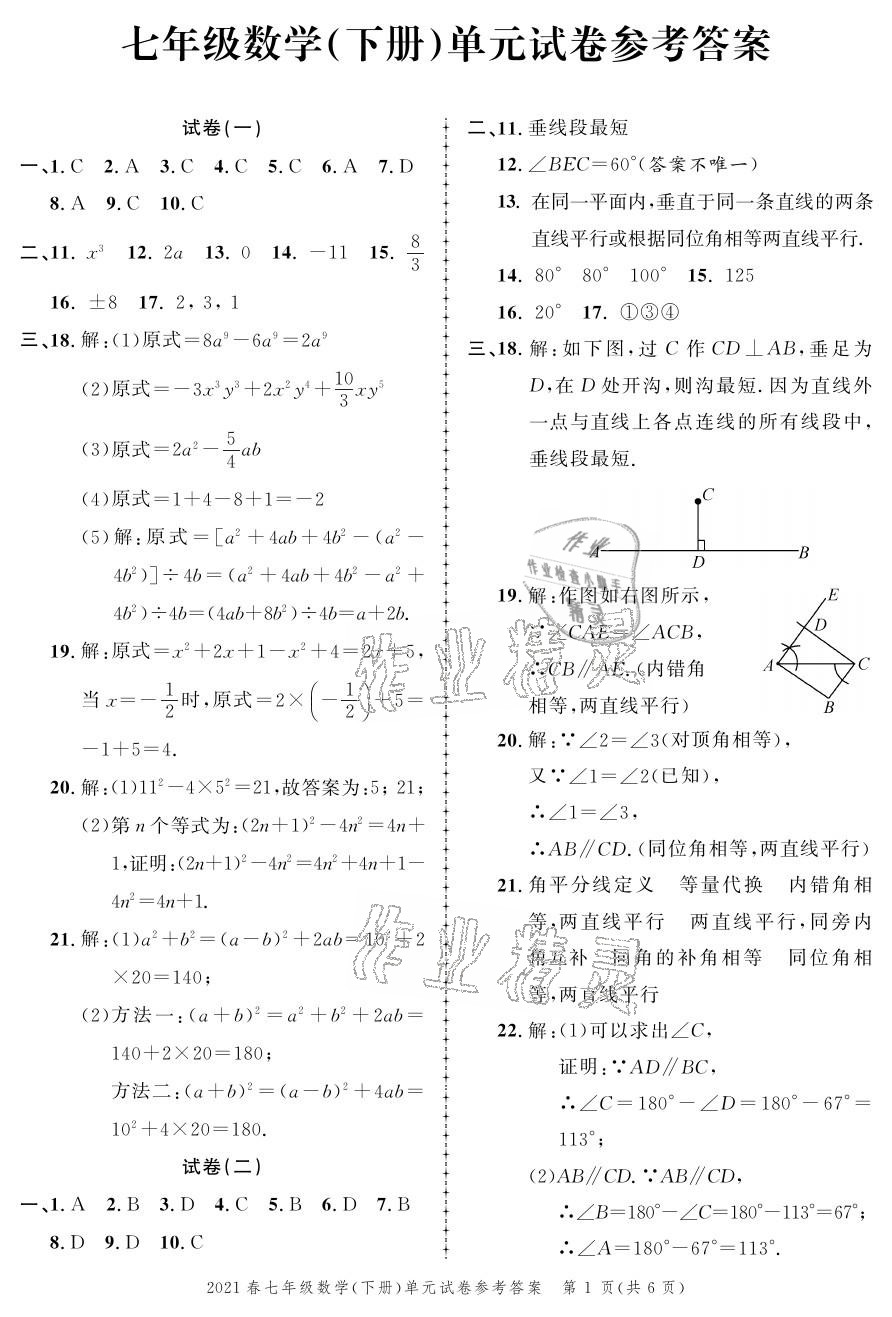 七年级数学(下册)单元试卷参考答案
试卷(一)
一、1. C 2. A 3. C 4. C 5. C 6. A 7. D
8. A 9. C 10. C
二、11. x³ 12. 2a 13. 0 14. －11 15. 8/3
16. ±8 17. 2，3，1
三、18. 解：(1)原式＝8a⁹－6a⁹＝2a⁹
(2)原式＝－3x³y³＋2x²y⁴＋10/3xy⁵
(3)原式＝2a²－5/4ab
(4)原式＝1＋4－8＋1＝－2
(5)解：原式＝[a²＋4ab＋4b²－(a²－
4b²)]÷4b＝(a²＋4ab＋4b²－a²＋
4b²)÷4b＝(4ab＋8b²)÷4b＝a＋2b.
19. 解：原式＝x²＋2x＋1－x²＋4＝2x＋5，
当x＝－1/2时，原式＝2×(－1/2)＋5＝
－1＋5＝4.
20. 解：(1)11²－4×5²＝21，故答案为：5；21；
(2)第n个等式为：(2n＋1)²－4n²＝4n＋
1，证明：(2n＋1)²－4n²＝4n²＋4n＋1－
4n²＝4n＋1.
21. 解：(1)a²＋b²＝(a－b)²＋2ab＝10²＋2
×20＝140；
(2)方法一：(a＋b)²＝a²＋b²＋2ab＝
140＋2×20＝180；
方法二：(a＋b)²＝(a－b)²＋4ab＝
10²＋4×20＝180.
试卷(二)
一、1. A 2. B 3. D 4. C 5. B 6. D 7. B
8. D 9. D 10. C
二、11. 垂线段最短
12. ∠BEC＝60°(答案不唯一)
13. 在同一平面内，垂直于同一条直线的两条
直线平行或根据同位角相等两直线平行.
14. 80° 80° 100° 15. 125
16. 20° 17. ①③④
三、18. 解：如下图，过C作CD⊥AB，垂足为
D，在D处开沟，则沟最短. 因为直线外
一点与直线上各点连线的所有线段中，
垂线段最短.
C
A D B
作业
作业检查小助手
精灵
19. 解：作图如右图所示，
∵∠CAE＝∠ACB，
∴CB∥AE. (内错角
相等，两直线平行)
E
D
A C
B
作业精灵
20. 解：∵∠2＝∠3(对顶角相等)，
又∵∠1＝∠2(已知)，
∴∠1＝∠3，
∴AB∥CD. (同位角相等，两直线平行)
21. 角平分线定义 等量代换 内错角相
等，两直线平行 两直线平行，同旁内
角互补 同角的补角相等 同位角相
等，两直线平行
作业精灵
22. 解：(1)可以求出∠C，
证明：∵AD∥BC，
∴∠C＝180°－∠D＝180°－67°＝
113°；
(2)AB∥CD. ∵AB∥CD，
∴∠B＝180°－∠C＝180°－113°＝67°；
∴∠A＝180°－67°＝113°.
2021春七年级数学(下册)单元试卷参考答案 第1页(共6页)